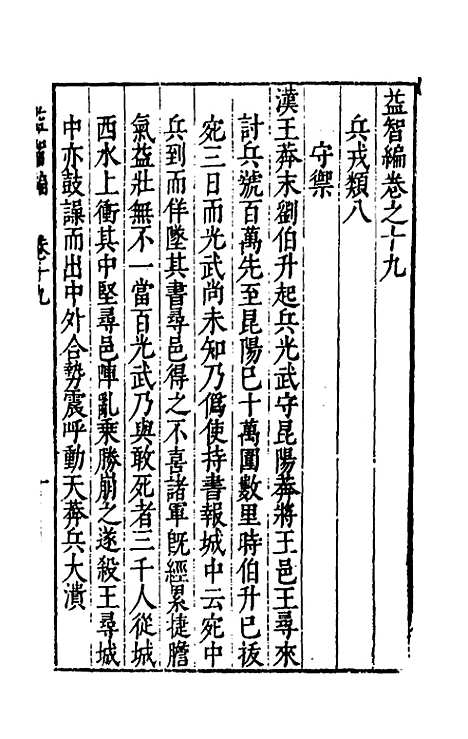 益智編卷之十九
兵戎類八
守禦
漢王莽末劉伯升起兵光武守昆陽莽將王邑王尋來
討兵號百萬先至昆陽巳十萬圍數里時伯升巳拔
宛三日而光武尚未知乃僞使持書報城中云宛中
兵到而佯墜其書尋邑得之不喜諸軍旣經累捷膽
氣益壯無不一當百光武乃與敢死者三千人從城
西水上衝其中堅尋邑陣亂乘勝崩之遂殺王尋城
中亦鼓譟而出中外合勢震呼動天莽兵大潰
益智編 卷十九 一